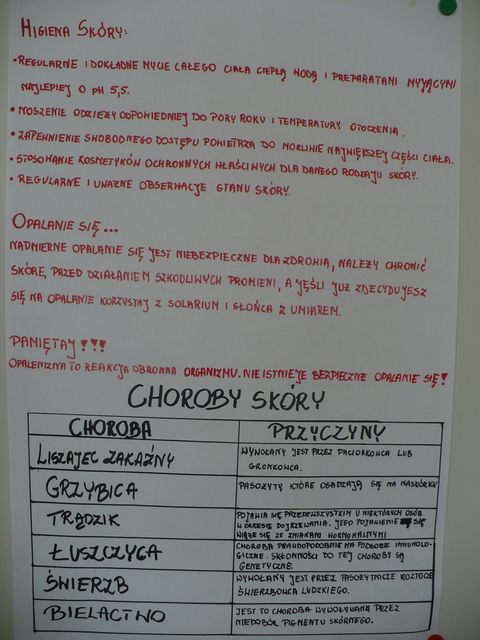 HIGIENA SKÓRY:
• REGULARNE I DOKŁADNE MYCIE CAŁEGO CIAŁA CIEPŁĄ WODĄ I PREPARATAMI MYJĄCYMI
NAJLEPIEJ O PH 5,5.
• NOSZENIE ODZIEŻY ODPOWIEDNIEJ DO PORY ROKU I TEMPERATURY OTOCZENIA.
• ZAPEWNIENIE SWOBODNEGO DOSTĘPU POWIETRZA DO MOŻLIWIE NAJWIĘKSZEJ CZĘŚCI CIAŁA.
• STOSOWANIE KOSMETYKÓW OCHRONNYCH WŁAŚCIWYCH DLA DANEGO RODZAJU SKÓRY.
• REGULARNE I UWAŻNE OBSERWACJE STANU SKÓRY.
OPALANIE SIĘ...
NADMIERNE OPALANIE SIĘ JEST NIEBEZPIECZNE DLA ZDROWIA, NALEŻY CHRONIĆ
SKÓRĘ, PRZED DZIAŁANIEM SZKODLIWYCH PROMIENI, A JEŚLI JUŻ ZDECYDUJESZ
SIĘ NA OPALANIE KORZYSTAJ Z SOLARIUM I SŁOŃCA Z UMIAREM.
PAMIĘTAJ!!!
OPALENIZNA TO REAKCJA OBRONNA ORGANIZMU. NIE ISTNIEJE BEZPIECZNE OPALANIE SIĘ!
CHOROBY SKÓRY
CHOROBA PRZYCZYNY
LISZAJEC ZAKAŹNY WYWOŁANY JEST PRZEZ PACIORKOWCA LUB
GRONKOWCA.
GRZYBICA PASOŻYTY KTÓRE OSADZAJĄ SIĘ NA NASKÓRKU
TRĄDZIK POJAWIA SIĘ PRZEDEWSZYSTKIM U NIEKTÓRYCH OSÓB
W OKRESIE DOJRZEWANIA. JEGO POJAWIENIE SIĘ
WIĄŻE SIĘ ZE ZMIANAMI HORMONALNYMI
ŁUSZCZYCA CHOROBA PRAWDOPODOBNIE NA PODŁOŻE IMMUNOLO-
GICZNE. SKŁONNOŚCI DO TEJ CHOROBY SĄ
GENETYCZNE.
ŚWIERZB WYWOŁANY JEST PRZEZ PASOŻYTNICZE ROZTOCZE
ŚWIERZBOWCA LUDZKIEGO.
BIELACTWO JEST TO CHOROBA WYWOŁYWANA PRZEZ
NIEDOBÓR PIGMENTU SKÓRNEGO.